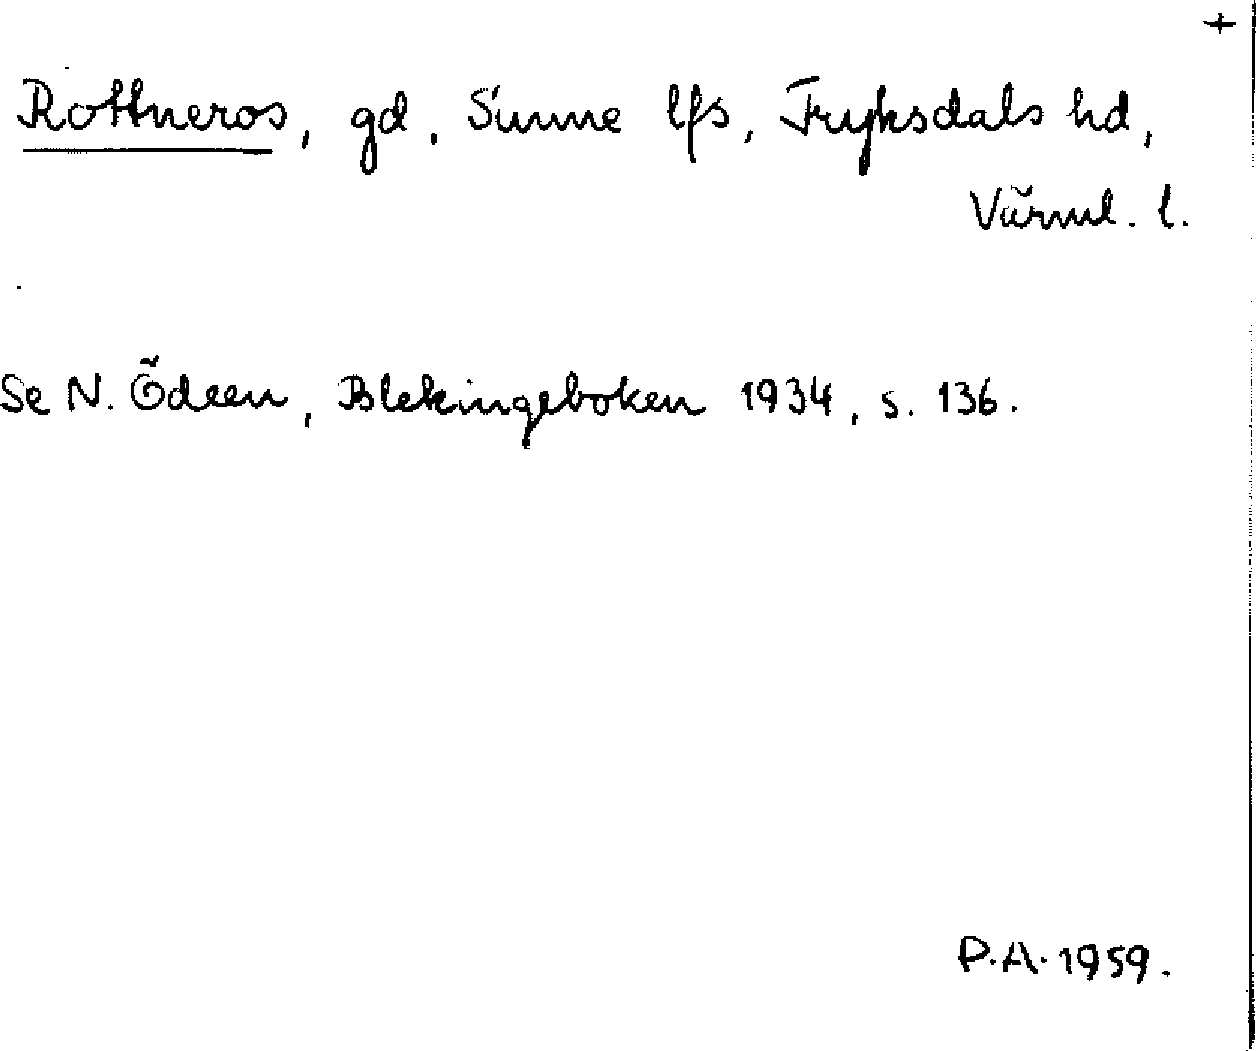 +
Rottneros, gd, Sunne lfs, Fryksdals hd,
Värml. l.
Se N. Ödeen, Blekingeboken 1934, s. 136.
P.A. 1959.